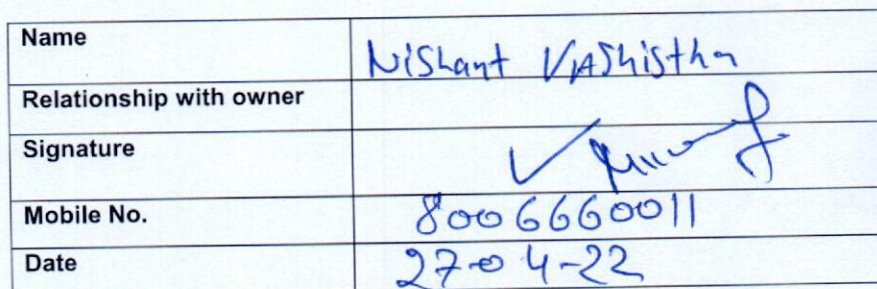 Name Nishant Vashistha
Relationship with owner
Signature
Mobile No. 8006660011
Date 27-04-22